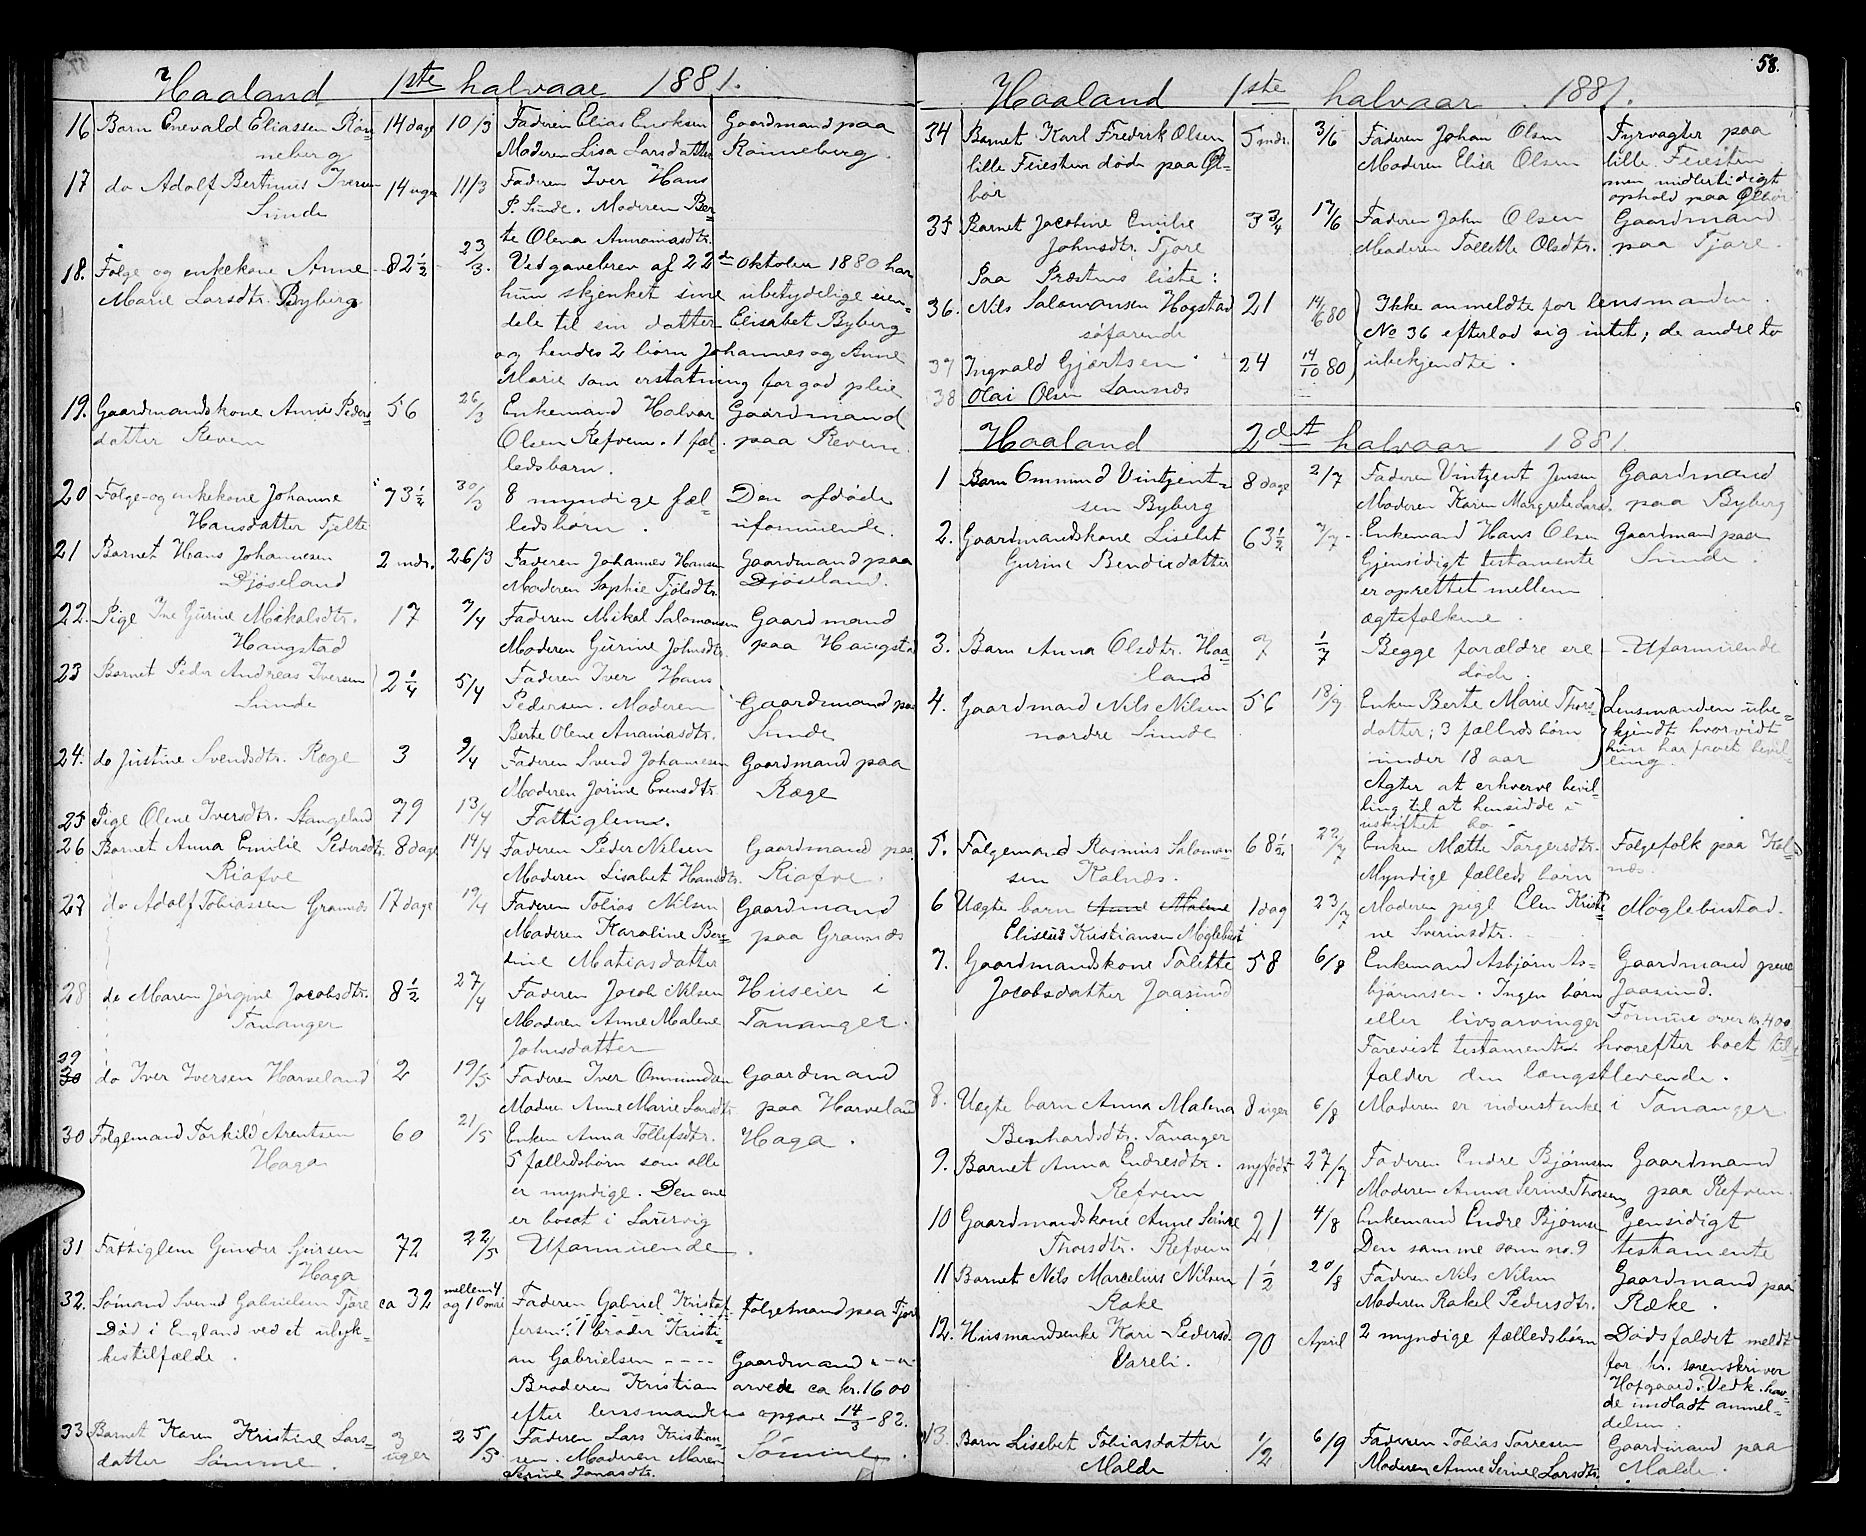 Haaland 1ste halvaar 1881.
16 Barn Enevald Eliassen Rön- 14 dage 10/3 Faderen Elias Eriksen Gaardmand paa
neberg Moderen Lisa Larsdatter Rönneberg.
17 do Adolf Bertinius Iversen 14 uger 11/3 Faderen Iver Hans
Sunde P. Sunde. Moderen Ber-
te Olena Annaniasdtr.
18. Følge og enkekone Anne 82 1/2 23/3. Ved gavebrev af 22de Oktober 1880 har
Marie Larsdtr. Byberg hun skjenket sine ubetydelige eien-
dele til sin datter Elisabet Byberg
og hendes 2 börn Johannes og Anne
Marie som erstatning for god pleie
19. Gaardmandskone Anne Peders- 56 26/3 Enkemand Halvar Gaardmand
datter Revem Olsen Refvem. 1 fæl- paa Revem.
ledsbarn.
20 Følge-og enkekone Johanne 73 1/2 30/3 8 myndige fæl- Den afdøde
Hansdatter Tjelte ledsbörn. uformuende.
21 Barnet Hans Johannesen 2 mdr. 26/3 Faderen Johannes Hansen Gaardmand paa
Djöseland Moderen Sophie Tjölsdtr. Djöseland.
22. Pige Ine Gurine Mikalsdtr. 17 7/4 Faderen Mikal Salomonsen Gaardmand
Haugstad Moderen Gurine Johnsdtr. paa Haugstad
23 Barnet Peder Andreas Iversen 2 1/4 5/4 Faderen Iver Hans
Sunde Pedersen. Moderen Gaardmand paa
Berte Olene Ananiasdtr. Sunde
24. do Justine Svendsdtr. Ræge 3 9/4 Faderen Svend Johannesen Gaardmand paa
Moderen Jörine Evensdtr. Ræge
25 Pige Olene Iversdtr. Stangeland 79 13/4 Fattiglem.
26 Barnet Anna Emilie Pedersdtr. 8 dage 14/4 Faderen Peder Nilsen Gaardmand paa
Riafve Moderen Lisabet Hansdtr. Riafve.
27 do Adolf Tobiassen Grannæs 17 dage 19/4 Faderen Tobias Nilsen Gaardmand
Moderen Karoline Ber- paa Grannæs
tine Matiasdatter
28 do Maren Jörgine Jacobsdtr. 8 1/2 27/4 Faderen Jacob Nilsen Huseier i
Tananger Moderen Anne Malene Tananger.
Johnsdatter
29
30 do Iver Iversen Harveland 2 19/5 Faderen Iver Ommundsen Gaardmand
Moderen Anne Marie Larsdtr. paa Harveland
30 Følgemand Torkild Arentsen 60 21/5 Enken Anna Tollefsdtr. Haga.
Haga 5 fælledsbörn som alle
er myndige. Den ene
er bosat i Laurvig
31 Fattiglem Gunder Sjursen 72 22/5 Uformuende.
Haga
32. Sömand Svend Gabrielsen Tjore ca 32 mellem 4 og 10 mai Faderen Gabriel Kristof- Følgemand paa Tjore
Död i England ved et ulyk- fersen. 1 broder Kristi-
kestilfælde. an Gabrielsen - - - - Gaardmand - -
Broderen Kristian arvede ca kr. 1600
efter lensmandens opgave 14/3-82.
33 Barnet Karen Kristine Lars- 3 uger 25/5 Faderen Lars Kristian-
datter Sömme. sen. Moderen Maren Sömme.
Serine Jonasdtr.
58.
Haaland 1ste halvaar 1881.
34 Barnet Karl Fredrik Olsen 5 mdr. 3/6 Faderen Johan Olsen Fyrvagter paa
lille Feiesten døde paa Øl- Moderen Elisa Olsen lille Feiesten
bör men midlertidigt
ophold paa Ölbör
35 Barnet Jacobine Emilie 3 3/4 17/6 Faderen John Olsen Gaardmand
Johnsdtr. Tjore Moderen Tollette Olsdtr. paa Tjore
Paa Præstens liste:
36. Nils Salamonsen Hogstad 21 14/6 80 Ikke anmeldte for lensmanden.
söfarende No 36 efterlod sig intet; de andre to
37 Ingvald Gjertsen 24 14/10 80 ubekjendte.
38 Olai Olsen
Haaland 2det halvaar 1881
1 Barn Ommund Vintzent- 8 dage 2/7 Faderen Vintzent Jensen Gaardmand
sen Byberg Moderen Karen Margrete Larsd. paa Byberg
2. Gaardmandskone Lisebet 63 1/2 7/7 Enkemand Hans Olsen Gaardmand paa
Gurine Bendixdatter Gjensidigt testamente Sunde.
er oprettet mellem
ægtefolkene.
3. Barn Anna Olsdtr. Haa- 7 1/7 Begge forældre ere Uformuende
land døde.
4. Gaardmand Nils Nilsen 56 18/7 Enken Berte Marie Thors- Lensmanden ube-
nordre Sunde datter; 3 fælledsbörn kjendt hvorvidt
under 18 aar hun har faaet bevil-
ling.
Agter at erhverve bevil-
ling til at hensidde i
uskiftet bo.
5. Følgemand Rasmus Saloman- 68 1/2 22/7 Enken Mætte Torgersdtr. Følgefolk paa Kol-
sen Kolnæs. Myndige fælleds børn næs.
6 Uægte barn Anne Malene 1 dag 23/7 Moderen pige Elen Kristi- Møglebustad.
Eliseus Kristiansen Moglebust ne Sverinsdtr.
7. Gaardmandskone Tolette 58 6/8 Enkemand Asbjørn As- Gaardmand paa
Jacobsdatter Jaasund bjørnsen. Ingen børn Jaasund.
eller livsarvinger Formue over kr. 400
Farevist testamente hvorefter boet til-
falder den længstlevende.
8. Uægte barn Anna Malena 8 uger 6/8 Moderen er inderstenke i Tananger
Benhardsdtr. Tananger
9. Barnet Anna Endresdtr. nyfødt 27/7 Faderen Endre Bjørnsen Gaardmand
Refvem Moderen Anna Serine Thorsen, paa Refvem.
10 Gaardmandskone Anne Serine 21 4/8 Enkemand Endre Bjørnsen Gensidigt
Thorsdtr. Refvem Den samme som no. 9 testamente
11 Barnet Nils Marcelius Nilsen 1 1/2 20/8 Faderen Nils Nilsen Gaardmand paa
Røke Moderen Rakel Pedersdtr. Røke.
12. Husmandsenke Kari Pedersd. 90 April 2 myndige fælledsbörn Dødsfaldet meldt
Vareli. for hr. sorenskriver
Hofgaard. Vedk. hav-
de undladt anmel-
delsen.
13. Barn Lisebet Tobiasdatter 1/2 6/9 Faderen Tobias Torresen Gaardmand paa
Malde Moderen Anne Serine Larsdtr. Malde.